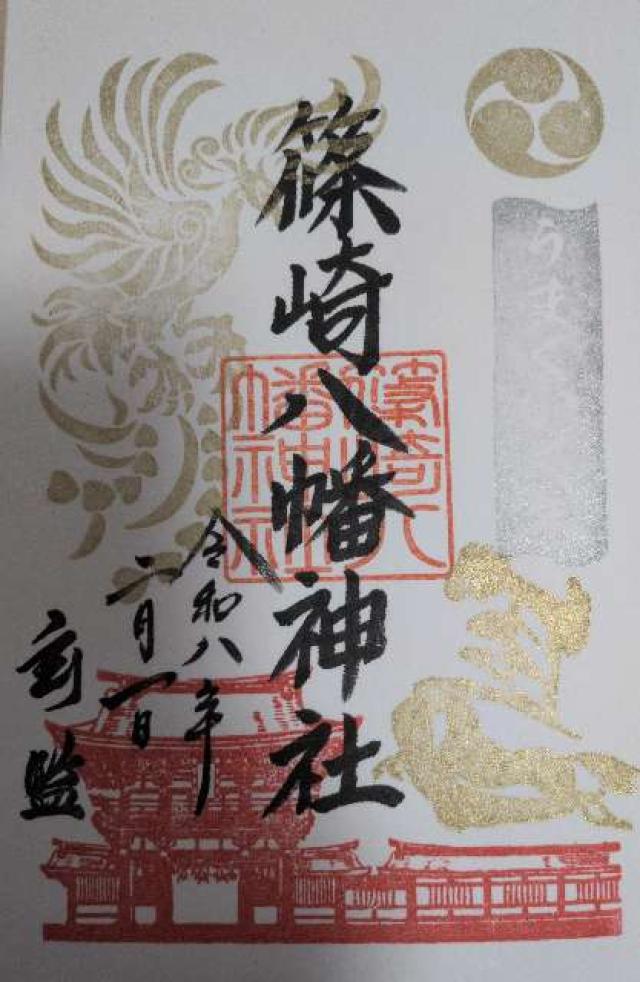 うまくいく
篠崎八幡神社
篠崎八
幡神社
令和八年
二月一日